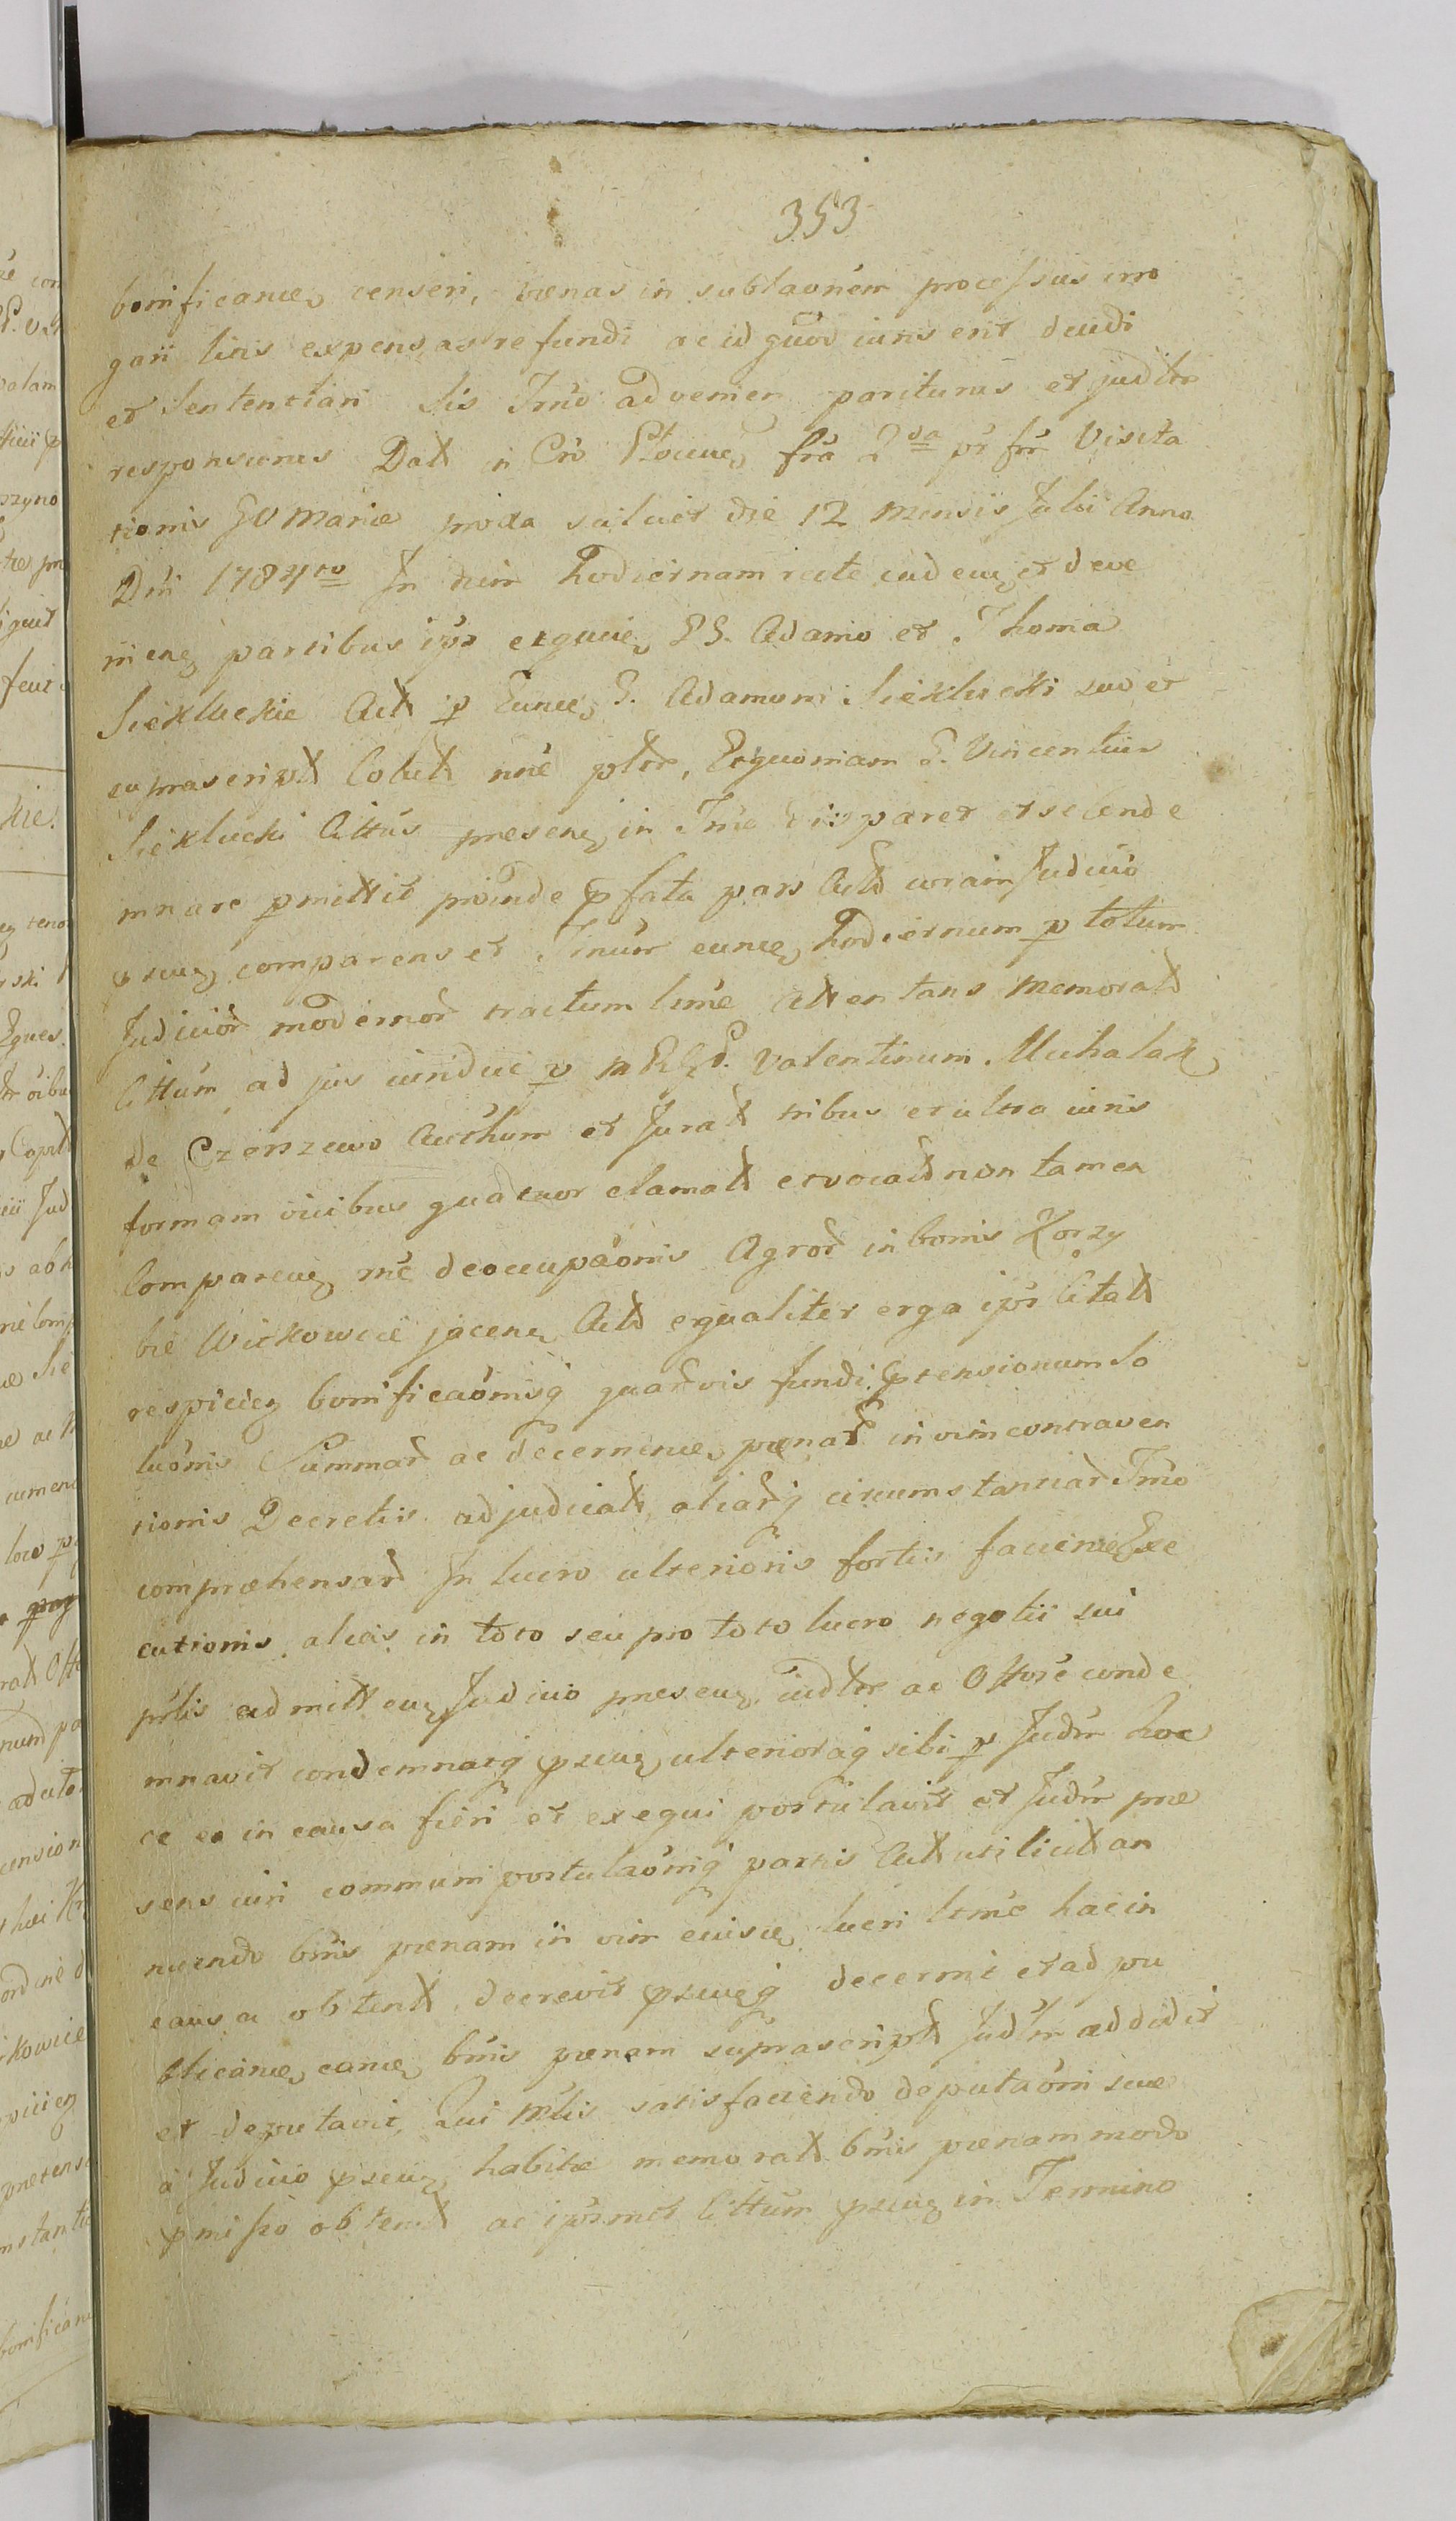 353
bonificandum censeri, poenas in subtaunem processus irro
gari litis expensas refundi ac id quod iuris erit decidi
et Sententiari Sis Tmo advenien pariturus et judtr
responsurus Datt in Cro Plocen fra 2da pt frr Visita
tionis BV Mariae proxa scilicet die 12 Mensis Julii Anno
Dni 1784to In huin hodiernam recte caden et deve
nien partibus ips GG. Adamo et Thoma
Siekluckie Actt p Eund G. Adamum Sieklucki suo et
supra scriptt Collatt nne pttr, Et quoniam G. Vincentius
Sieklucki Cittus presen in Tmo non paret et se conde
mnare pmittit proinde pfata pars Actt coram Judicio
psenz comparens et Tmum eund hodiernum p totum
Judicior modernor tractum ltme attentans memoratt
Cittum ad jus iuridice p Valentinum Michalak
de Czerszewo et Juratt tribus et ultra iuris
formam vicibus quatuor clamatt et vocatt non tamen
Comparenz nne deoccupaonis Agror in bonis Korzy
bie Wickowcie jacenz Actt equaliter erga ips Citatt
respicienz bonificaonisq quarvis fundi ptensionum So
luonis Summar ac decernend poenar in vim contraven
tionis Decretis adjudicatt, aliarq circumstantiar Tmo
compraehensar In lucro ulterioris fortis faciendae Exe
cutionis alias in toto seu pro toto lucro negotii sui
prlis admittenz Judicio presenz, iudttr ac Ottore conde
mnavit condemnatq psenz ulterioraq sibi p Judm hoc
ce ea in causa fieri et exequi postulavit et Judm prae
sens iuri communi postulaoniq partis Actt uti licitt an
nuendo bnis poenam in vim lucri ltme hac in
causa obtentt decrevit psenzq decerni et ad pu
blicand eand bnis poenam suprascriptt addidit
et deputavit, Qui Mtlis satisfaciendo deputaoni suae
a Judicio psenz habitae memoratt bnis poenam modo
pmisso obtentt ac ipsmet Cittum psenz in Termino